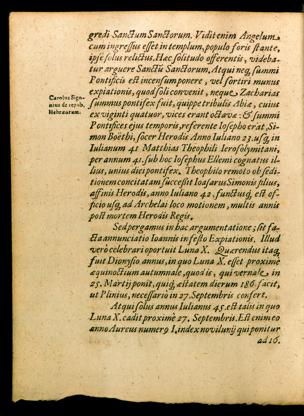 gredi Sanctum Sanctorum. Vidit enim Angelum
cum ingressus esset in templum, populo foris stante,
ipse solus relictus. Hæc solitudo offerentis, videba-
tur arguere Sanctū Sanctorum. Atqui neq; summi
Pontificis est incensum ponere, vel sortiri munus
expiationis, quod soli convenit, neque Zacharias
Carolus Sigo-
nius de repub.
Hebræorum.
summus pontifex fuit, quippe tribulis Abiæ, cuius
ex viginti quatuor, vices erant octavæ: & summi
Pontifices ejus temporis, referente Iosepho erāt, Si-
mon Boëthi, socer Herodis Anno Iuliano 23. usq; in
Iulianum 41 Matthias Theophili Ierosolymitani,
per annum 41. sub hoc Iosephus Ellemi cognatus il-
lius, unius diei pontifex. Theophilo remoto ob sedi-
tionem concitatam successit Ioasarus Simonis filius,
affinis Herodis, anno Iuliano 42, functusq; est of-
ficio usq; ad Archelai loco motionem, multis annis
post mortem Herodis Regis.
Sed pergamus in hac argumentatione; sit fa-
cta annunciatio Ioannis in festo Expiationis. Illud
verò celebrari oportuit Luna X. Quærendus itaq;
fuit Dionysio annus, in quo Luna X. esset proximè
æquinoctium autumnale, quod is, qui vernale in
25. Martij ponit, quiq; æstatem dierum 186. facit,
ut Plinius, necessario in 27. Septembris confert.
Atqui solus annus Iulianus 45. est talis in quo
Luna X. cadit proximè 27. Septembris. Est enim eo
anno Aureus numerq I, index novilunij qui ponitur
ad 16.